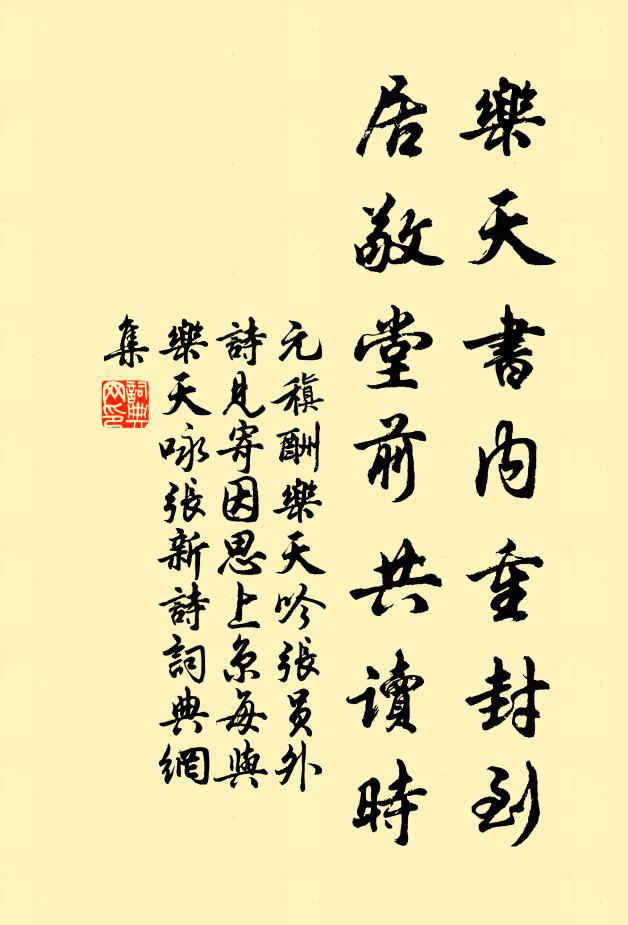 樂天書內重封到
居敬堂前共讀時
元稹酬樂天吟張員外
詩見寄因思上京每與
樂天咏張新詩詞典網
集
詞典網印